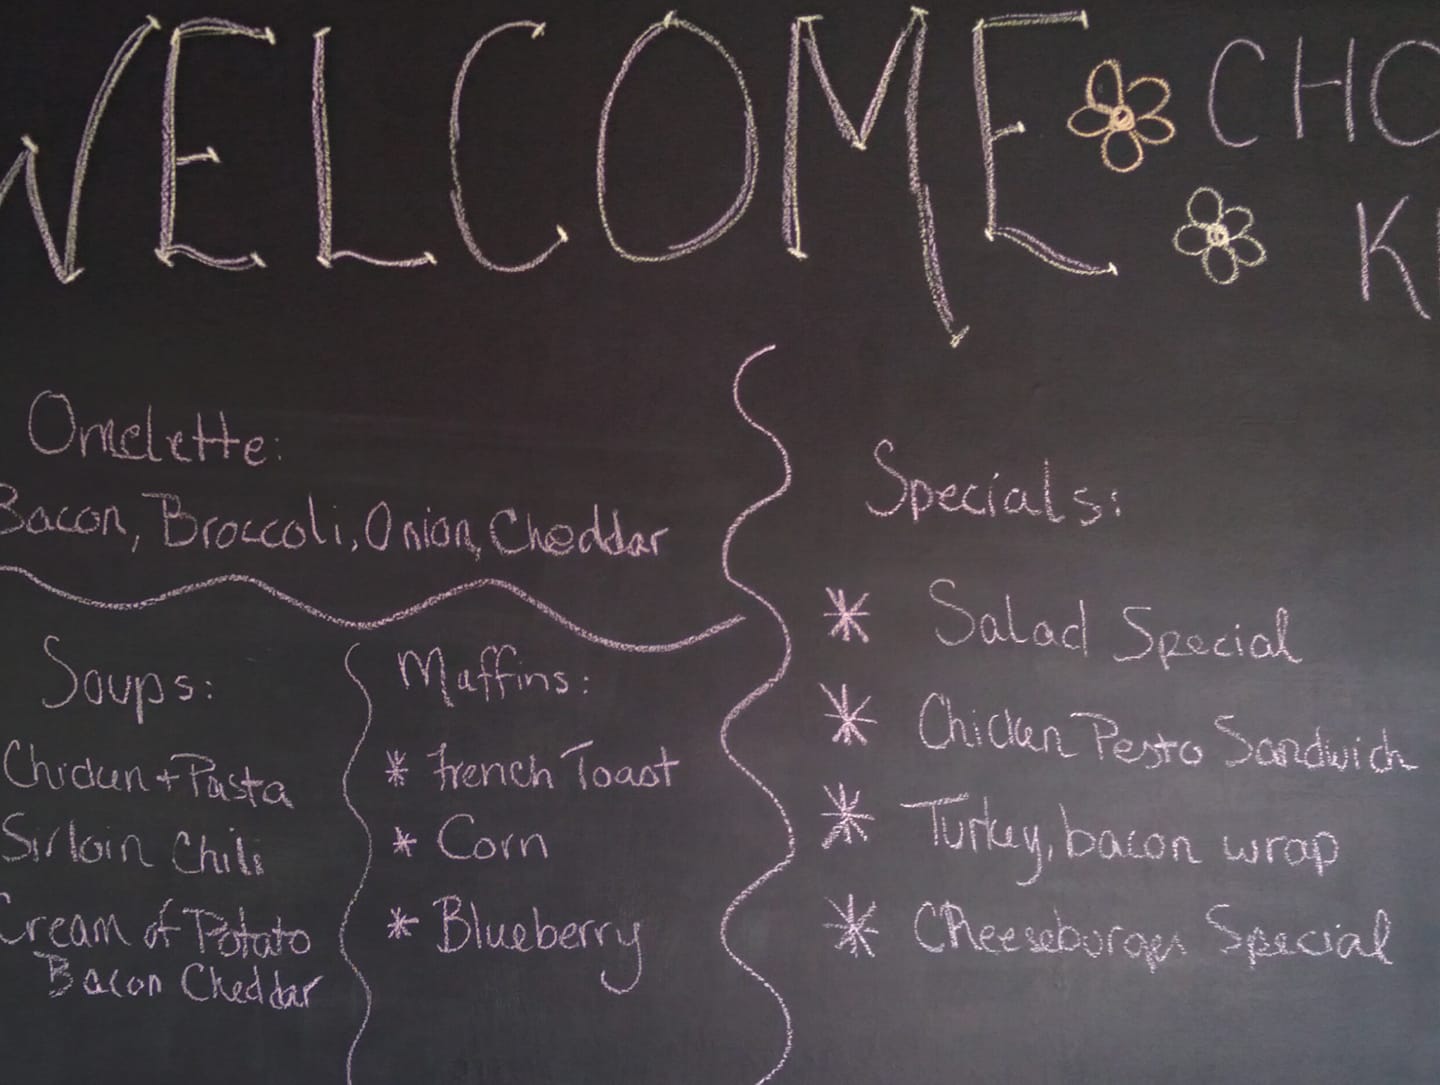 WELCOME CHO
K
Omelette:
Bacon, Broccoli, Onion, Cheddar
Soups:
Chicken + Pasta
Sirloin Chili
Cream of Potato
Bacon Cheddar
Muffins:
* French Toast
* Corn
* Blueberry
Specials:
* Salad Special
* Chicken Pesto Sandwich
* Turkey, bacon wrap
* Cheeseburger Special